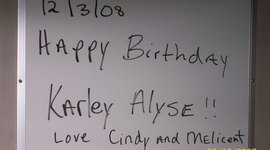 12/3/08
Happy Birthday
Karley Alyse !!
Love Cindy and Melicent